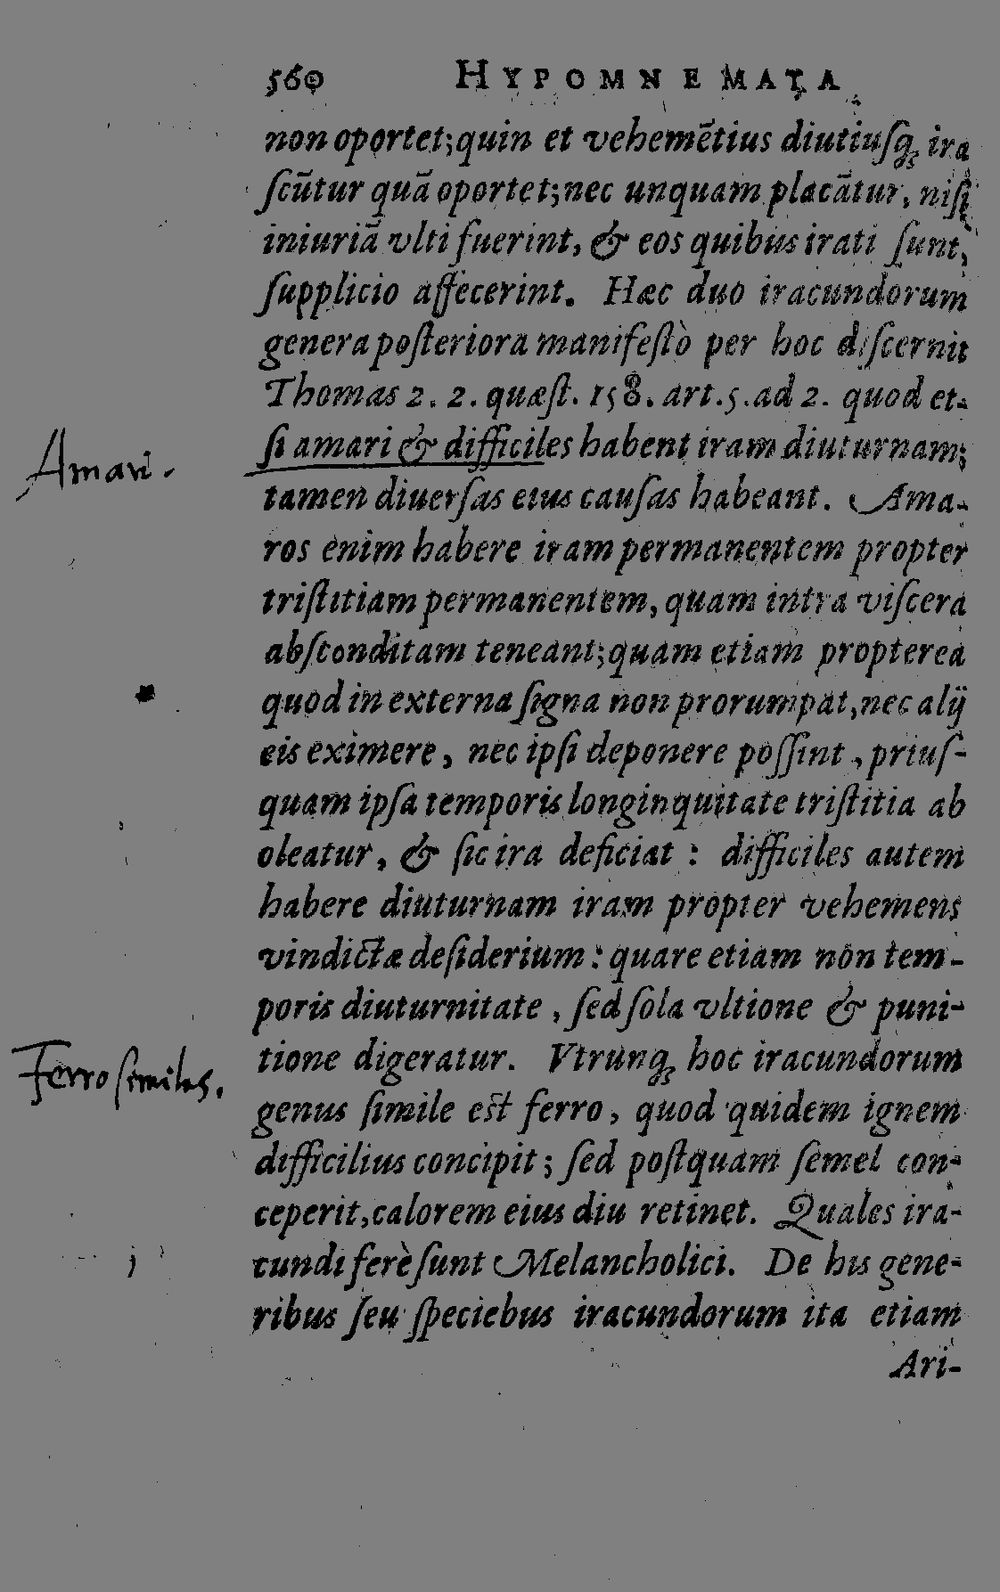 560 HYPOMNEMATA
non oportet; quin et vehemẽtius diutiusq; ira
scũtur quã oportet; nec unquam placãtur, nisi
iniuriã vlti fuerint, & eos quibus irati sunt,
supplicio affecerint. Hæc duo iracundorum
genera posteriora manifestò per hoc discernit
Thomas 2. 2. quæst. 158. art. 5. ad 2. quod et-
si amari & difficiles habent iram diuturnam;
Amari.
tamen diuersas eius causas habeant. Ama-
ros enim habere iram permanentem propter
tristitiam permanentem, quam intra viscera
absconditam teneant; quam etiam propterea
quod in externa signa non prorumpat, nec alij
eis eximere, nec ipsi deponere possint, prius-
quam ipsa temporis longinquitate tristitia ab
oleatur, & sic ira deficiat: difficiles autem
habere diuturnam iram propter vehemens
vindictæ desiderium: quare etiam non tem-
poris diuturnitate, sed sola vltione & puni-
tione digeratur. Vtrunq; hoc iracundorum
Ferro similes.
genus simile est ferro, quod quidem ignem
difficilius concipit; sed postquam semel con-
ceperit, calorem eius diu retinet. Quales ira-
cundi ferè sunt Melancholici. De his gene-
ribus seu speciebus iracundorum ita etiam
Ari-